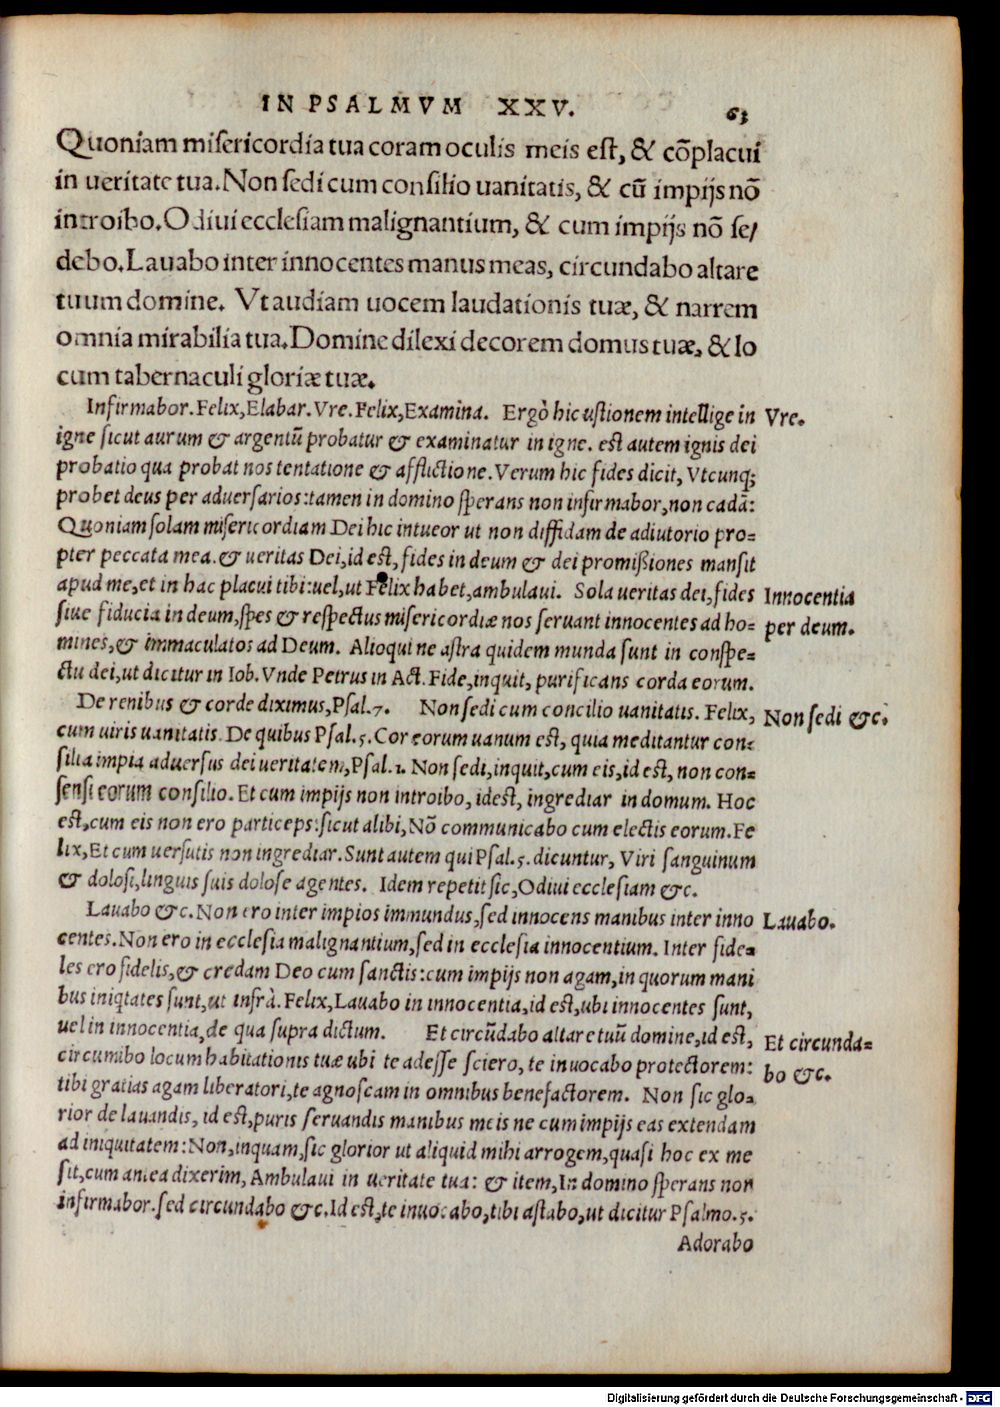 IN PSALMVM XXV. 63
Quoniam misericordia tua coram oculis meis est, & cōplacui
in ueritate tua. Non sedi cum consilio uanitatis, & cū impijs nō
introibo. Odiui ecclesiam malignantium, & cum impijs nō se/
debo. Lauabo inter innocentes manus meas, circundabo altare
tuum domine. Vt audiam uocem laudationis tuæ, & narrem
omnia mirabilia tua. Domine dilexi decorem domus tuæ, & lo
cum tabernaculi gloriæ tuæ.
Infirmabor. Felix, Elabar. Vre. Felix, Examina. Ergò hic ustionem intellige in
Vre.
igne sicut aurum & argentū probatur & examinatur in igne. est autem ignis dei
probatio qua probat nos tentatione & afflictione. Verum hic fides dicit, Vtcunq;
probet deus per aduersarios: tamen in domino sperans non infirmabor, non cadā:
Quoniam solam misericordiam Dei hic intueor ut non diffidam de adiutorio pro=
pter peccata mea. & ueritas Dei, id est, fides in deum & dei promissiones mansit
apud me, et in hac placui tibi: uel, ut Felix habet, ambulaui. Sola ueritas dei, fides
Innocentia
siue fiducia in deum, spes & respectus misericordiæ nos seruant innocentes ad ho=
per deum.
mines, & immaculatos ad Deum. Alioqui ne astra quidem munda sunt in conspe=
ctu dei, ut dicitur in Iob. Vnde Petrus in Act. Fide, inquit, purificans corda eorum.
De renibus & corde diximus, Psal. 7. Non sedi cum concilio uanitatis. Felix,
Non sedi &c.
cum uiris uanitatis. De quibus Psal. 5. Cor eorum uanum est, quia meditantur con=
silia impia aduersus dei ueritatem, Psal. 1. Non sedi, inquit, cum eis, id est, non con=
sensi eorum consilio. Et cum impijs non introibo, idest, ingrediar in domum. Hoc
est, cum eis non ero particeps: sicut alibi, Nō communicabo cum electis eorum. Fe
lix, Et cum uersutis non ingrediar. Sunt autem qui Psal. 5. dicuntur, Viri sanguinum
& dolosi, linguis suis dolose agentes. Idem repetit sic, Odiui ecclesiam &c.
Lauabo &c. Non ero inter impios immundus, sed innocens manibus inter inno
Lauabo.
centes. Non ero in ecclesia malignantium, sed in ecclesia innocentium. Inter fide=
les ero fidelis, & credam Deo cum sanctis: cum impijs non agam, in quorum mani
bus iniqtates sunt, ut infrà. Felix, Lauabo in innocentia, id est, ubi innocentes sunt,
uel in innocentia, de qua supra dictum. Et circūdabo altare tuū domine, id est,
Et circunda=
circumibo locum habitationis tuæ ubi te adesse sciero, te inuocabo protectorem:
bo &c.
tibi gratias agam liberatori, te agnoscam in omnibus benefactorem. Non sic glo=
rior de lauandis, id est, puris seruandis manibus meis ne cum impijs eas extendam
ad iniquitatem: Non, inquam, sic glorior ut aliquid mihi arrogem, quasi hoc ex me
sit, cum antea dixerim, Ambulaui in ueritate tua: & item, In domino sperans non
infirmabor. sed circundabo &c. Id est, te inuocabo, tibi astabo, ut dicitur Psalmo. 5.
Adorabo
Digitalisierung gefördert durch die Deutsche Forschungsgemeinschaft - DFG